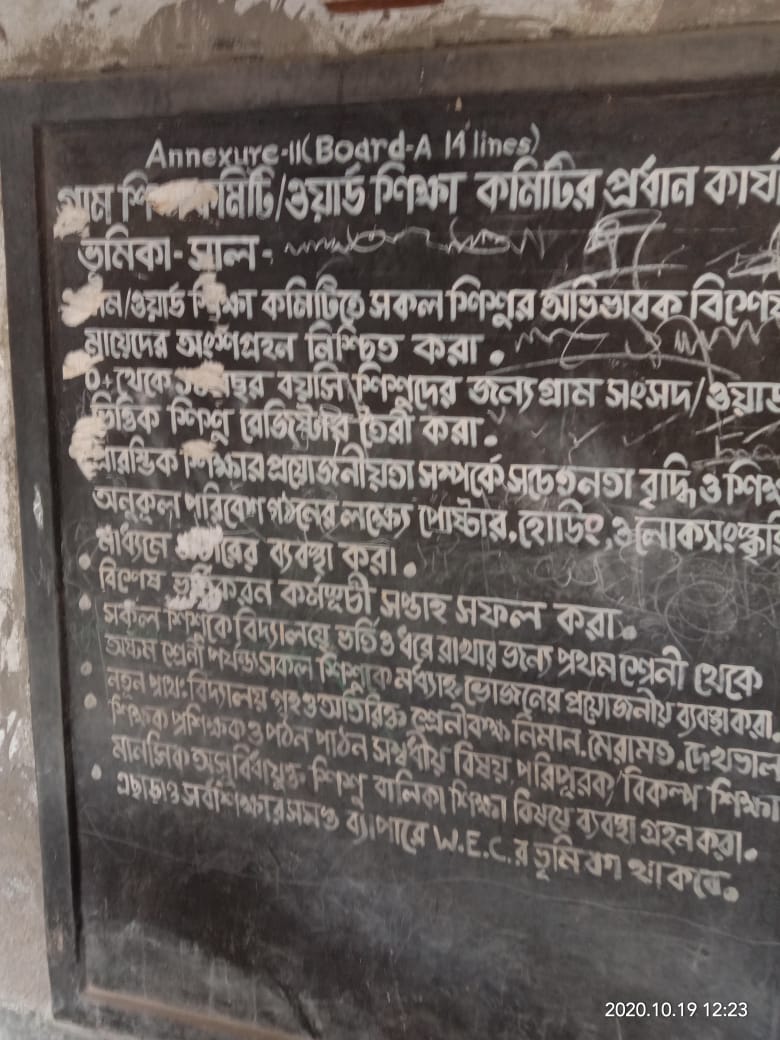 Annexure-II(Board-A 14 lines)
গ্রাম শি কমিটি/ওয়ার্ড শিক্ষা কমিটির প্রধান কার্য
ভূমিকা- সাল-
/ওয়ার্ড শিক্ষা কমিটিতে সকল শিশুর অভিভাবক বিশেষ
মায়েদের অংশগ্রহন নিশ্চিত করা।
০+ থেকে বছর বয়সি শিশুদের জন্য গ্রাম সংসদ/ওয়ার্ড
ভিত্তিক শিশু রেজিষ্টার তৈরী করা।
প্রারম্ভিক শিক্ষার প্রয়োজনীয়তা সম্পর্কে সচেতনতা বৃদ্ধি ও শিক্ষ
অনুকূল পরিবেশ গঠনের লক্ষ্যে পোষ্টার, হোর্ডিং, ও লোকসংস্কৃতি
মাধ্যমে ব্যবস্থা করা।
বিশেষ ভর্তিকরন কর্মসূচী সপ্তাহ সফল করা।
সকল শিশুকে বিদ্যালয়ে ভর্তি ও ধরে রাখার জন্য প্রথম শ্রেনী থেকে
অষ্টম শ্রেনী পর্যন্ত সকল শিশুকে মধ্যাহ্ন ভোজনের প্রয়োজনীয় ব্যবস্থা করা।
নতুন প্রাথ: বিদ্যালয় গৃহ ও অতিরিক্ত শ্রেনীকক্ষ নির্মান, মেরামত, দেখভাল
শিক্ষক প্রশিক্ষক ও পঠন পাঠন সম্বন্ধীয় বিষয় পরিপূরক/বিকল্প শিক্ষা
মানসিক অসুবিধাযুক্ত শিশু বালিকা শিক্ষা বিষয়ে ব্যবস্থা গ্রহন করা।
এছাড়াও সর্বশিক্ষার সমস্ত ব্যাপারে W.E.C.র ভূমিকা থাকবে।
2020.10.19 12:23